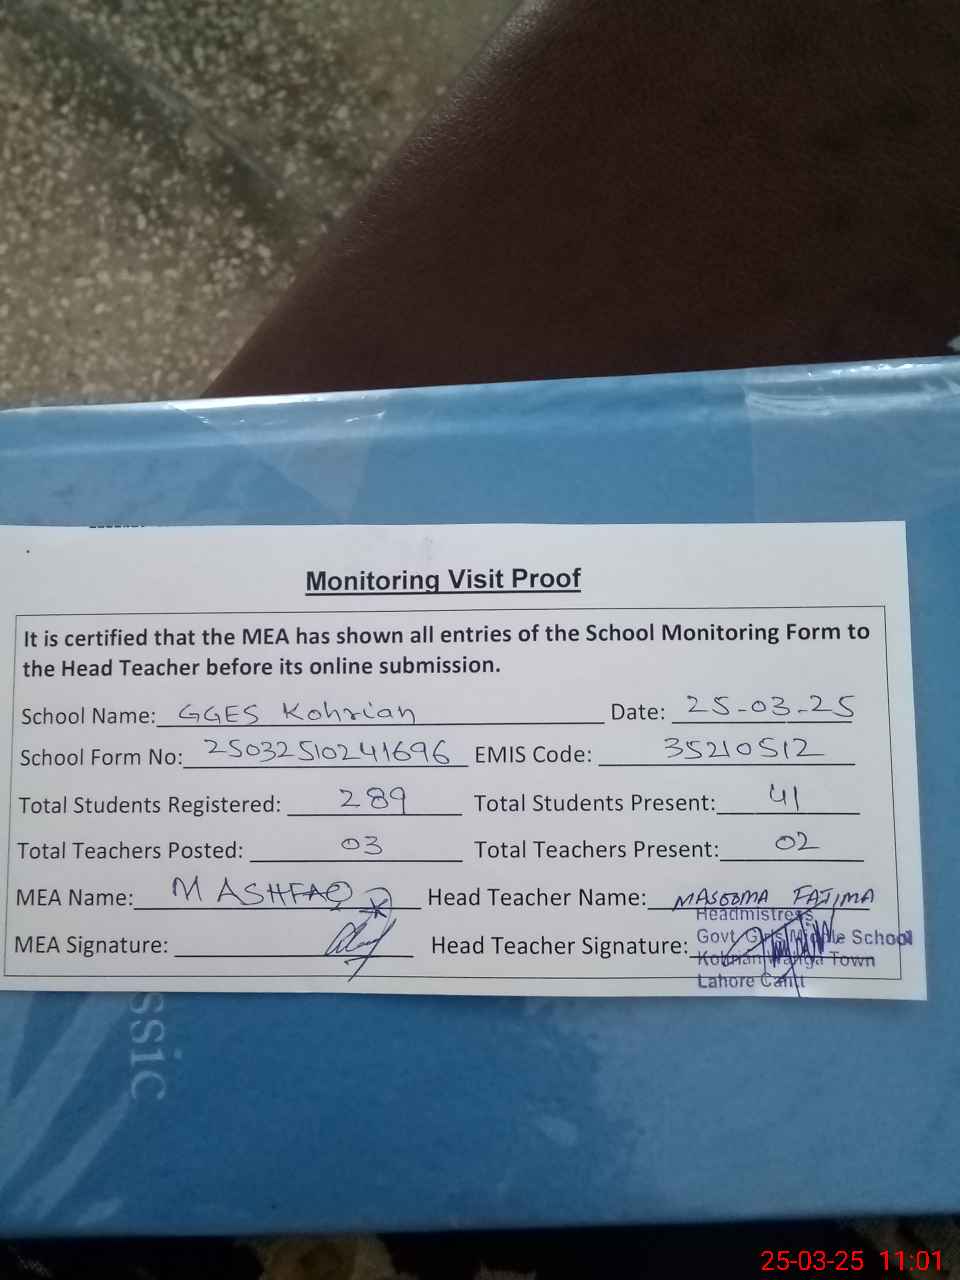 Monitoring Visit Proof
It is certified that the MEA has shown all entries of the School Monitoring Form to
the Head Teacher before its online submission.
School Name: GGES Kohrian Date: 25-03-25
School Form No: 25032510241696 EMIS Code: 35210512
Total Students Registered: 289 Total Students Present: 41
Total Teachers Posted: 03 Total Teachers Present: 02
MEA Name: M ASHFAQ Head Teacher Name: MASOOMA FATIMA
Headmistress
MEA Signature: Head Teacher Signature: Govt Girls Middle School
Town
Lahore Cantt
ssic
25-03-25 11:01